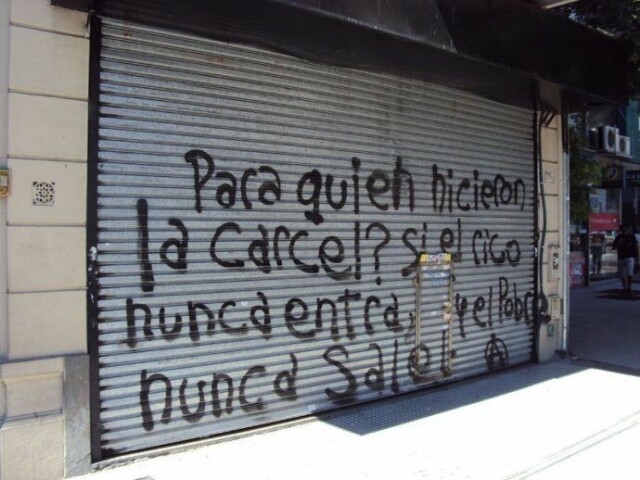 Para quien hicieron
la carcel? si el rico
nunca entra, y el Pobre
nunca sale. A